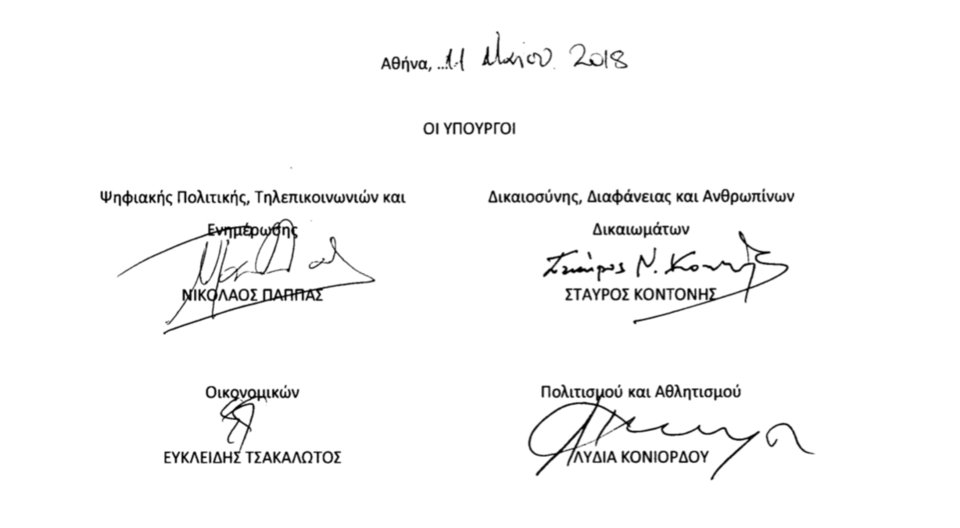 Αθήνα, ...11 Μαΐου 2018
ΟΙ ΥΠΟΥΡΓΟΙ
Ψηφιακής Πολιτικής, Τηλεπικοινωνιών και
Ενημέρωσης
ΝΙΚΟΛΑΟΣ ΠΑΠΠΑΣ
Δικαιοσύνης, Διαφάνειας και Ανθρωπίνων
Δικαιωμάτων
Σταύρος Ν. Κοντονής
ΣΤΑΥΡΟΣ ΚΟΝΤΟΝΗΣ
Οικονομικών
ΕΥΚΛΕΙΔΗΣ ΤΣΑΚΑΛΩΤΟΣ
Πολιτισμού και Αθλητισμού
ΛΥΔΙΑ ΚΟΝΙΟΡΔΟΥ